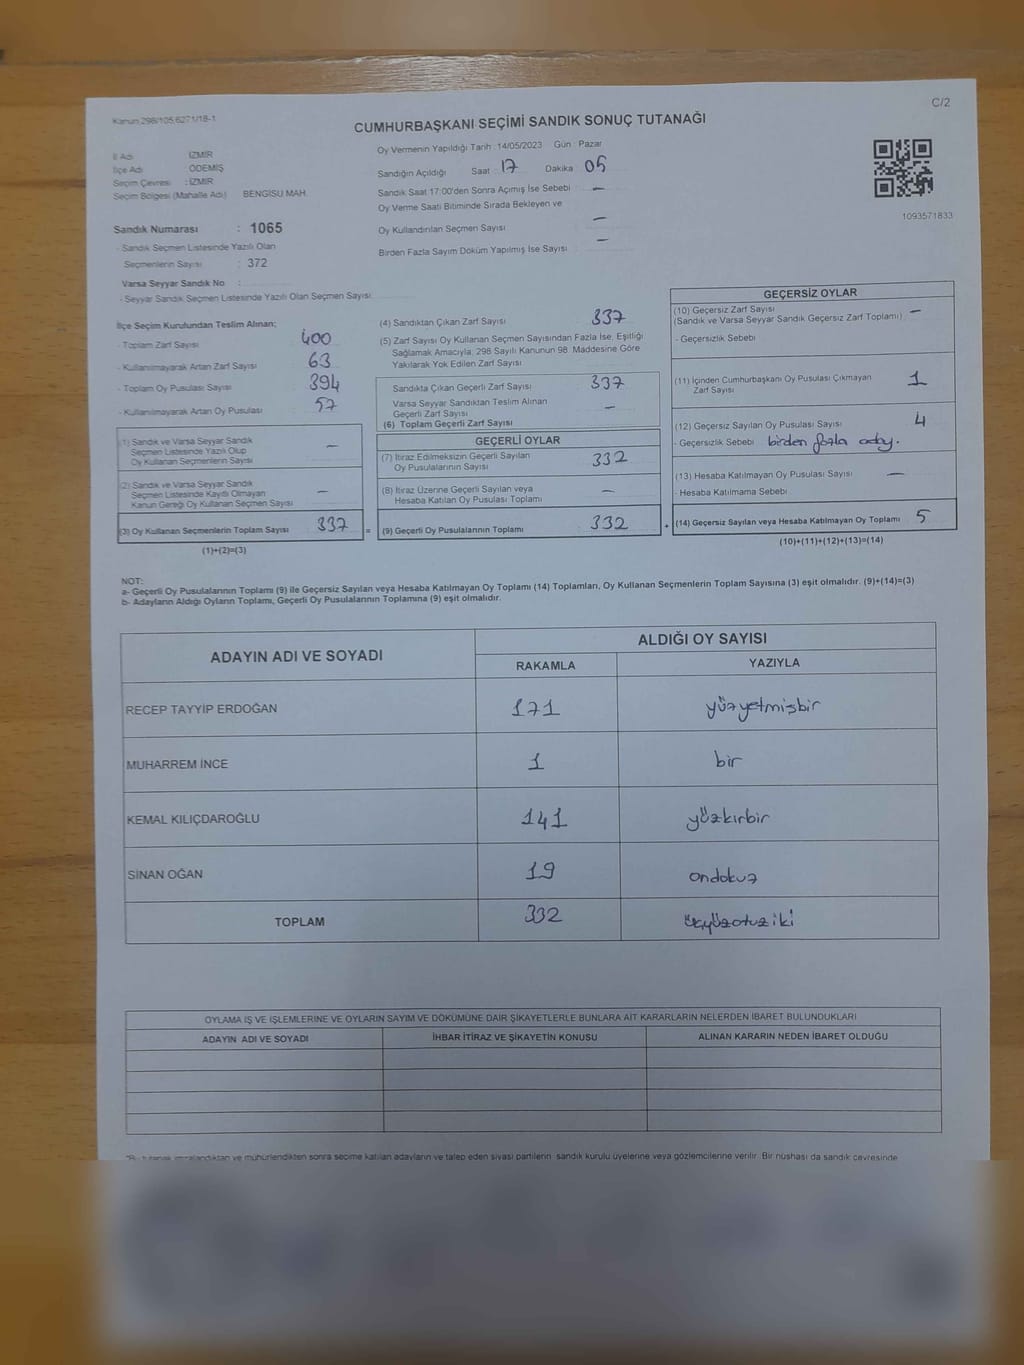 Kanun 298/105,6271/18-1
C/2
CUMHURBAŞKANI SEÇİMİ SANDIK SONUÇ TUTANAĞI
İl Adı : İZMİR
İlçe Adı ÖDEMİŞ
Seçim Çevresi : İZMİR
Seçim Bölgesi (Mahalle Adı) BENGİSU MAH.
Sandık Numarası : 1065
- Sandık Seçmen Listesinde Yazılı Olan
Seçmenlerin Sayısı : 372
Varsa Seyyar Sandık No :
- Seyyar Sandık Seçmen Listesinde Yazılı Olan Seçmen Sayısı:
Oy Vermenin Yapıldığı Tarih : 14/05/2023 Gün : Pazar
Sandığın Açıldığı Saat : 17 Dakika : 05
Sandık Saat 17:00'den Sonra Açımış İse Sebebi : —
Oy Verme Saati Bitiminde Sırada Bekleyen ve
Oy Kullandırılan Seçmen Sayısı : —
Birden Fazla Sayım Döküm Yapılmış İse Sayısı : —
1093571833
İlçe Seçim Kurulundan Teslim Alınan;
- Toplam Zarf Sayısı : 400
- Kullanılmayarak Artan Zarf Sayısı : 63
- Toplam Oy Pusulası Sayısı : 394
- Kullanılmayarak Artan Oy Pusulası : 57
(1) Sandık ve Varsa Seyyar Sandık
Seçmen Listesinde Yazılı Olup
Oy Kullanan Seçmenlerin Sayısı : —
(2) Sandık ve Varsa Seyyar Sandık
Seçmen Listesinde Kayıtlı Olmayan
Kanun Gereği Oy Kullanan Seçmen Sayısı : —
(3) Oy Kullanan Seçmenlerin Toplam Sayısı : 337
(1)+(2)=(3)
=
(4) Sandıktan Çıkan Zarf Sayısı : 337
(5) Zarf Sayısı Oy Kullanan Seçmen Sayısından Fazla İse, Eşitliği
Sağlamak Amacıyla, 298 Sayılı Kanunun 98. Maddesine Göre
Yakılarak Yok Edilen Zarf Sayısı
Sandıkta Çıkan Geçerli Zarf Sayısı : 337
Varsa Seyyar Sandıktan Teslim Alınan
Geçerli Zarf Sayısı : —
(6) Toplam Geçerli Zarf Sayısı
GEÇERLİ OYLAR
(7) İtiraz Edilmeksizin Geçerli Sayılan
Oy Pusulalarının Sayısı : 332
(8) İtiraz Üzerine Geçerli Sayılan veya
Hesaba Katılan Oy Pusulası Toplamı : —
(9) Geçerli Oy Pusulalarının Toplamı : 332
+
GEÇERSİZ OYLAR
(10) Geçersiz Zarf Sayısı
(Sandık ve Varsa Seyyar Sandık Geçersiz Zarf Toplamı) : —
- Geçersizlik Sebebi :
(11) İçinden Cumhurbaşkanı Oy Pusulası Çıkmayan
Zarf Sayısı : 1
(12) Geçersiz Sayılan Oy Pusulası Sayısı : 4
- Geçersizlik Sebebi : birden fazla aday.
(13) Hesaba Katılmayan Oy Pusulası Sayısı : —
- Hesaba Katılmama Sebebi :
(14) Geçersiz Sayılan veya Hesaba Katılmayan Oy Toplamı : 5
(10)+(11)+(12)+(13)=(14)
NOT:
a- Geçerli Oy Pusulalarının Toplamı (9) ile Geçersiz Sayılan veya Hesaba Katılmayan Oy Toplamı (14) Toplamları, Oy Kullanan Seçmenlerin Toplam Sayısına (3) eşit olmalıdır. (9)+(14)=(3)
b- Adayların Aldığı Oyların Toplamı, Geçerli Oy Pusulalarının Toplamına (9) eşit olmalıdır.
ADAYIN ADI VE SOYADI ALDIĞI OY SAYISI
RAKAMLA YAZIYLA
RECEP TAYYİP ERDOĞAN 171 yüzyetmişbir
MUHARREM İNCE 1 bir
KEMAL KILIÇDAROĞLU 141 yüzkırbir
SİNAN OĞAN 19 ondokuz
TOPLAM 332 üçyüzotuziki
OYLAMA İŞ VE İŞLEMLERİNE VE OYLARIN SAYIM VE DÖKÜMÜNE DAİR ŞİKAYETLERLE BUNLARA AİT KARARLARIN NELERDEN İBARET BULUNDUKLARI
ADAYIN ADI VE SOYADI İHBAR İTİRAZ VE ŞİKAYETİN KONUSU ALINAN KARARIN NEDEN İBARET OLDUĞU
*Bu tutanak imzalandıktan ve mühürlendikten sonra seçime katılan adayların ve talep eden siyasi partilerin sandık kurulu üyelerine veya gözlemcilerine verilir. Bir nüshası da sandık çevresinde